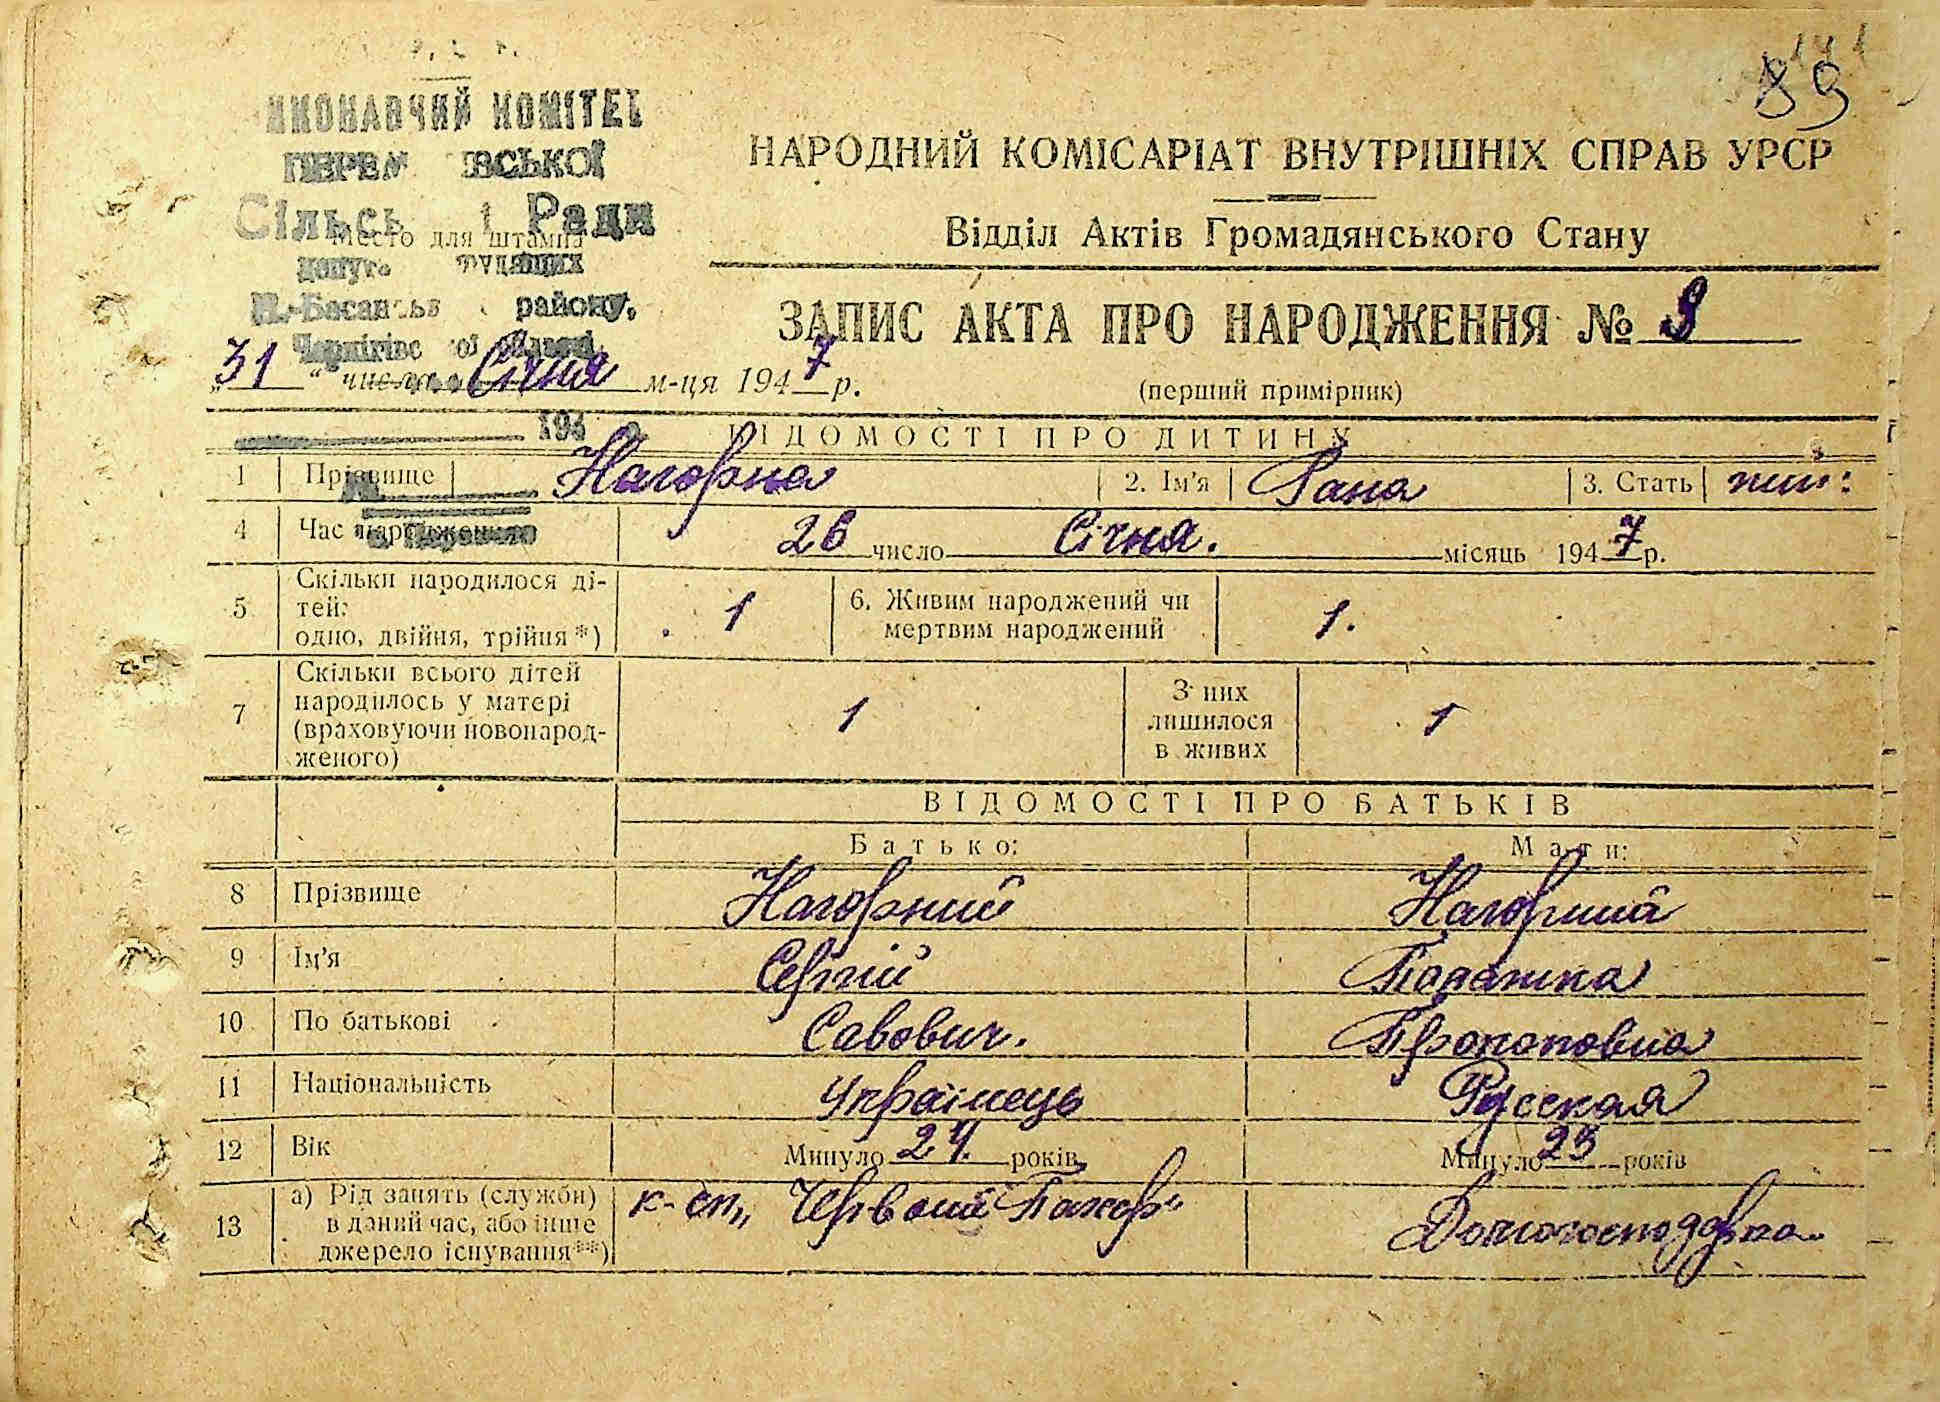 89
ИКОНАВЧИЙ КОМІТЕТ
Сільсь і Ради
Место для штампа
району,
НАРОДНИЙ КОМІСАРІАТ ВНУТРІШНІХ СПРАВ УРСР
Відділ Актів Громадянського Стану
ЗАПИС АКТА ПРО НАРОДЖЕННЯ № 9
„31“ числа Січня м-ця 1947 р.
(перший примірник)
194
ВІДОМОСТІ ПРО ДИТИНУ
1 Прізвище Нагорна 2. Ім'я Гана 3. Стать жін:
4 Час народження 26 число Січня. місяць 1947 р.
5 Скільки народилося ді-
тей:
одно, двійня, трійня*) 1
6. Живим народжений чи
мертвим народжений 1.
7 Скільки всього дітей
народилось у матері
(враховуючи новонарод-
женого) 1
З них
лишилося
в живих 1
ВІДОМОСТІ ПРО БАТЬКІВ
Батько: Мати:
8 Прізвище Нагорний Нагорная
9 Ім'я Сергій Полажка
10 По батькові Савович. Прокоповна
11 Національність Українець Русская
12 Вік Минуло 24. років Минуло 23 років
13 а) Рід занять (служби)
в даний час, або інше
джерело існування**)
к-сп „Червоний Пахар" Домогосподарка